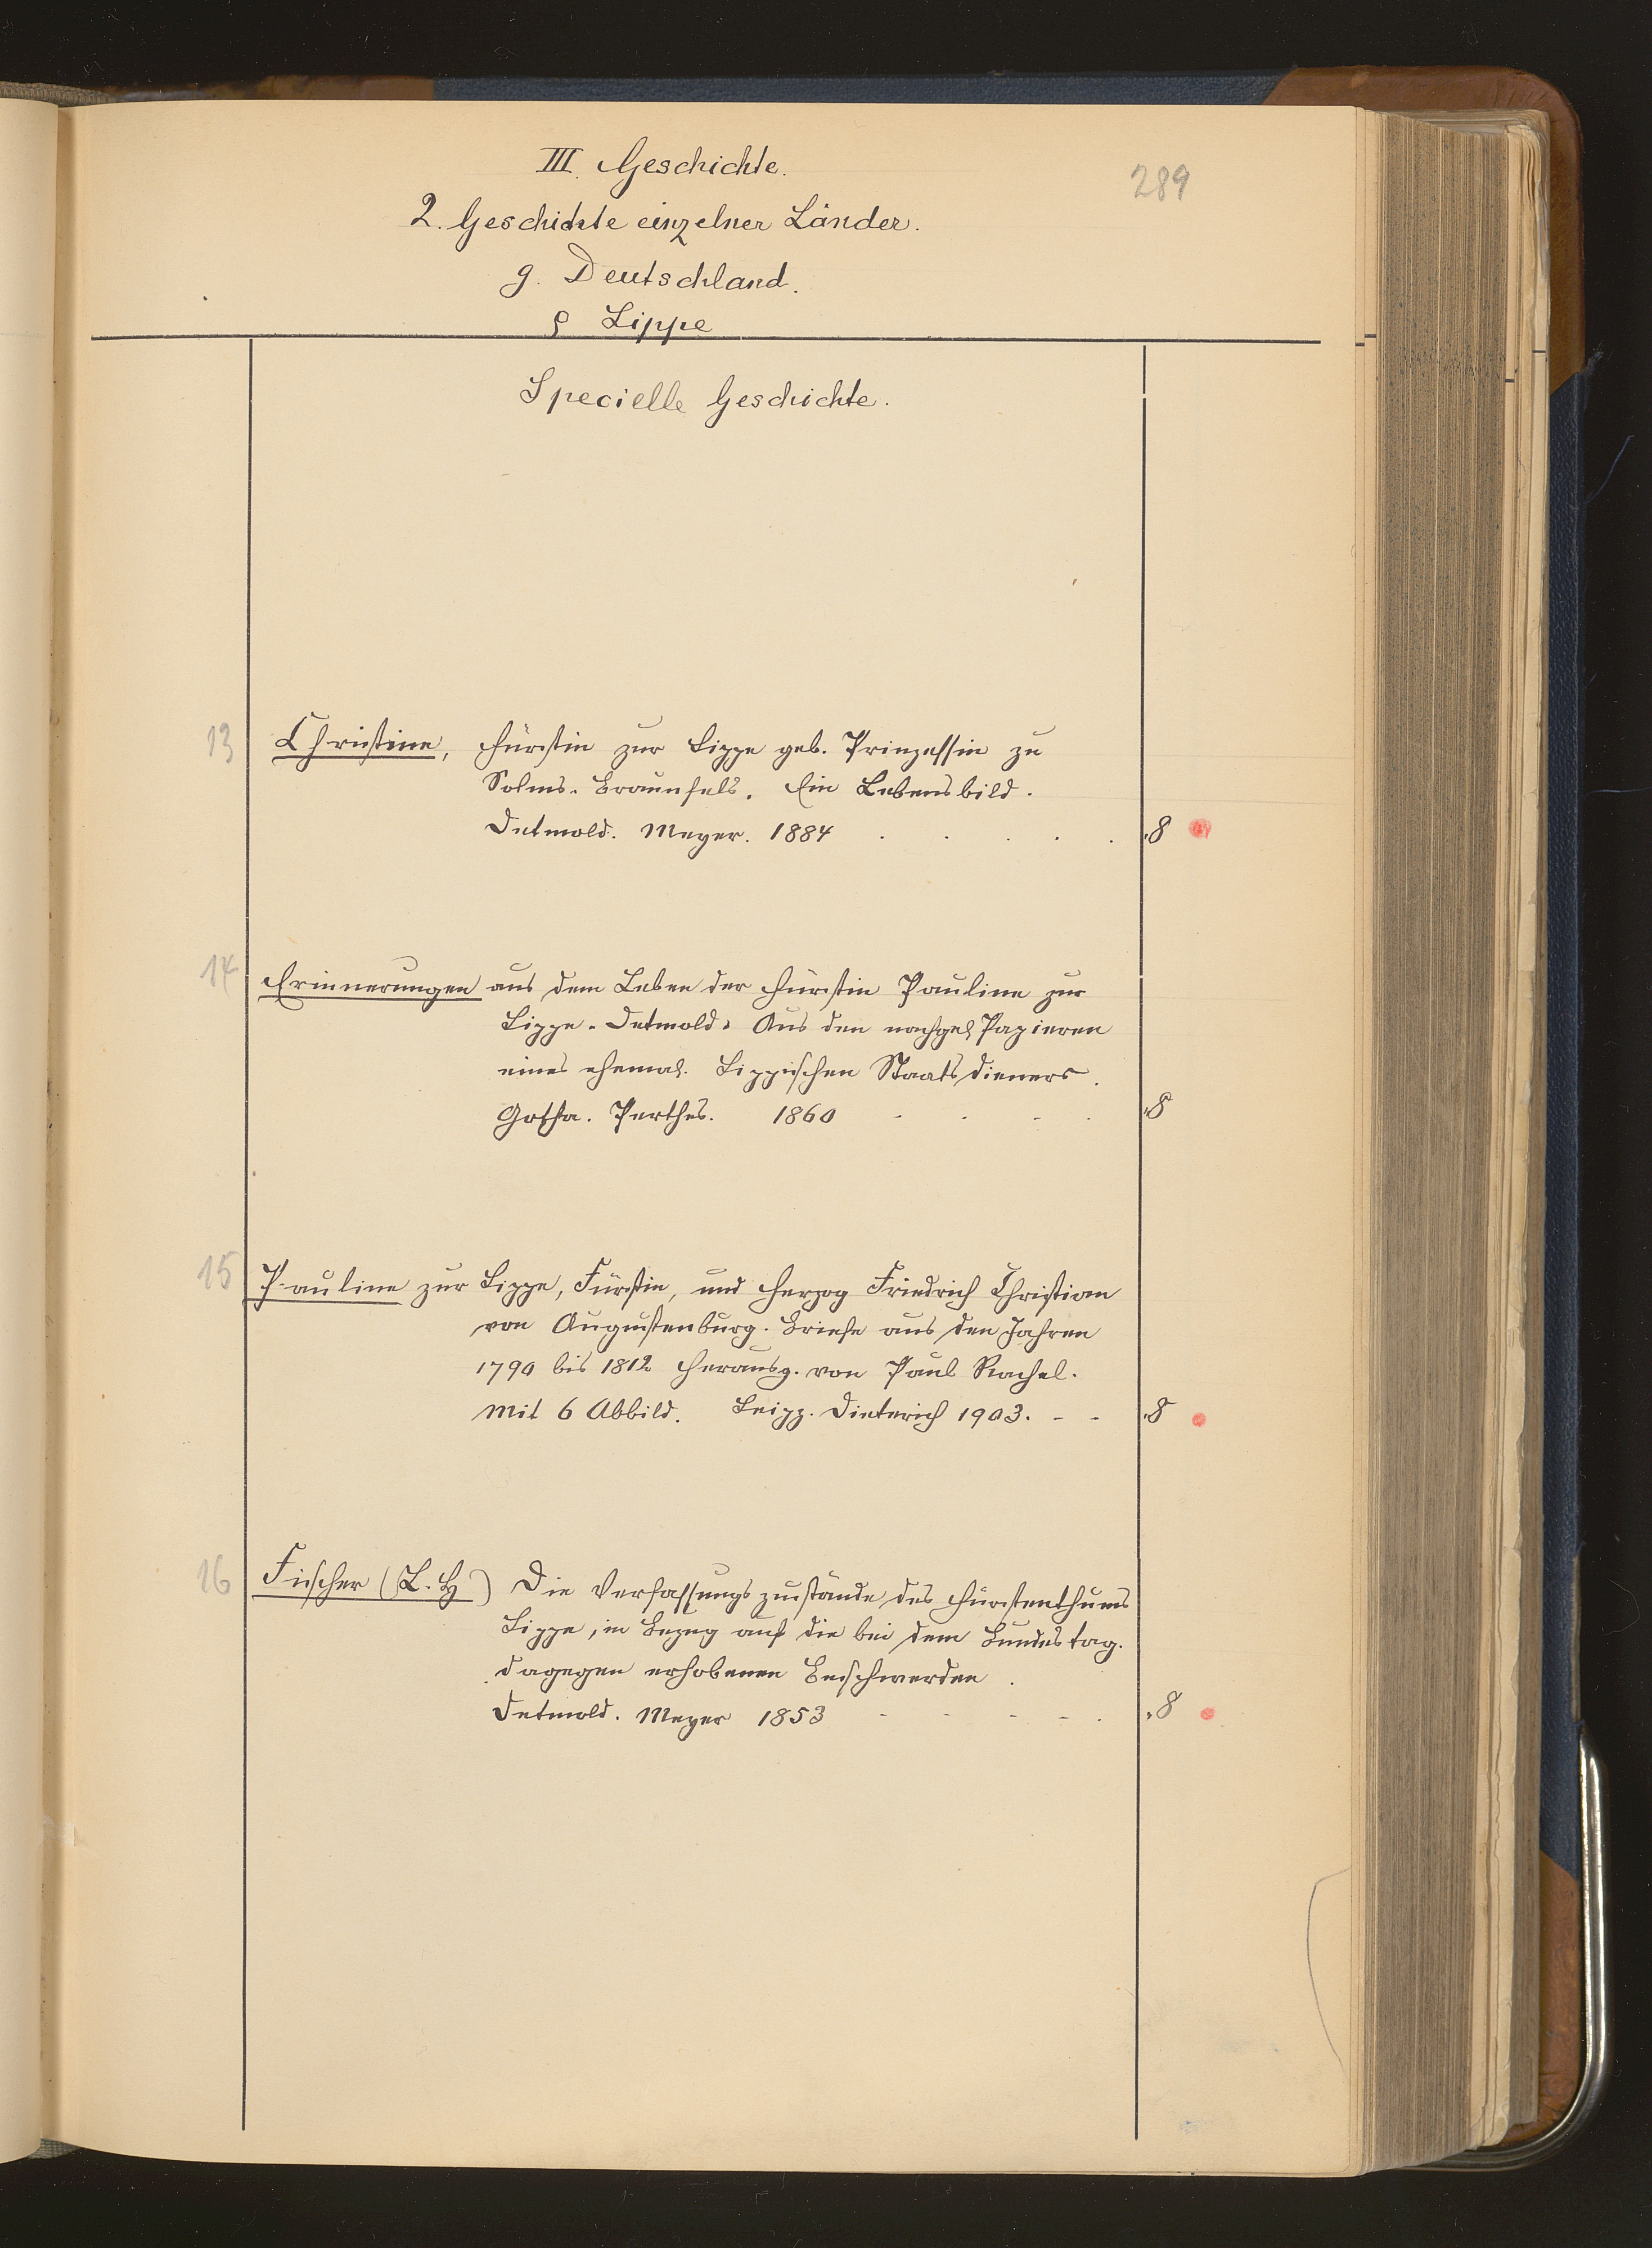 289
III. Geschichte.
2. Geschichte einzelner Länder.
g. Deutschland.
ϱ Lippe
Specielle Geschichte.
13 Christine, Fürstin zur Lippe geb. Prinzessin zu
Solms-Braunfels. Ein Lebensbild.
Detmold. Meyer. 1884 . . . . . 8
14 Erinnerungen aus dem Leben der Fürstin Pauline zur
Lippe-Detmold. Aus den nachgel. Papieren
eines ehemal. Lippischen Staatsdieners.
Gotha. Perthes. 1860 - . - . 8
15 Pauline zur Lippe, Fürstin, und Herzog Friedrich Christian
von Augustenburg. Briefe aus den Jahren
1790 bis 1812 herausg. von Paul Rachel.
Mit 6 Abbild. Leipz. Dieterich 1903. - - 8
16 Fischer (L. H) Die Verfassungszustände des Fürstenthums
Lippe, in Bezug auf die bei dem Bundestag.
dagegen erhobenen Beschwerden.
Detmold. Meyer 1853 - - - - . 8